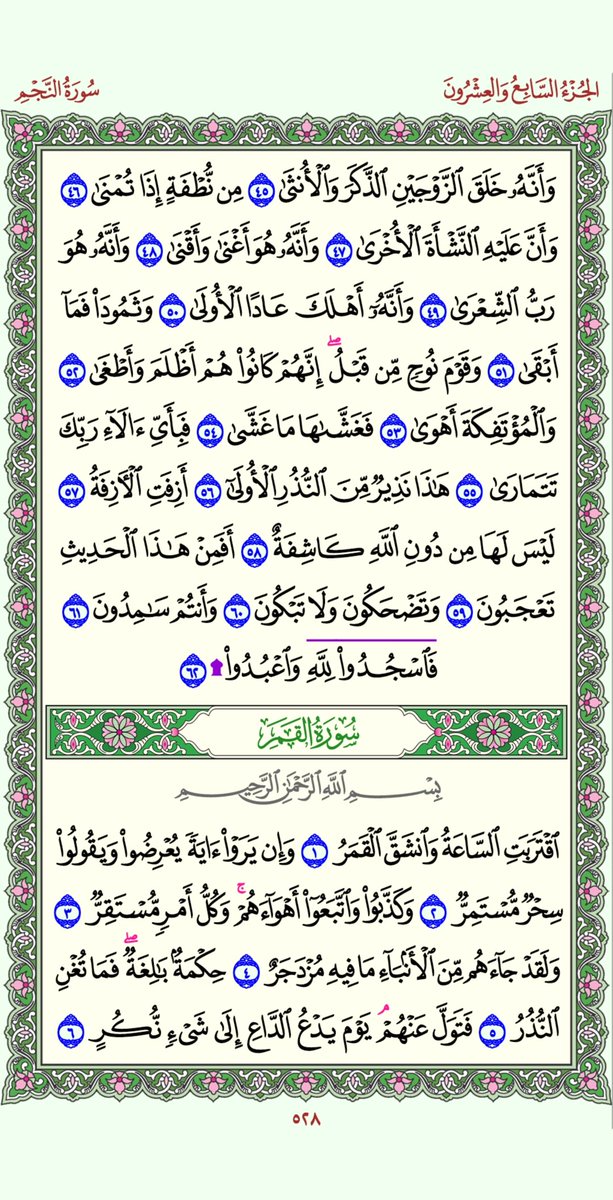 الجُزْءُ السَّابِعُ وَالعِشْرُونَ
سُورَةُ النَّجْمِ
وَأَنَّهُۥ خَلَقَ ٱلزَّوْجَيْنِ ٱلذَّكَرَ وَٱلْأُنثَىٰ ٤٥ مِن نُّطْفَةٍ إِذَا تُمْنَىٰ ٤٦
وَأَنَّ عَلَيْهِ ٱلنَّشْأَةَ ٱلْأُخْرَىٰ ٤٧ وَأَنَّهُۥ هُوَ أَغْنَىٰ وَأَقْنَىٰ ٤٨ وَأَنَّهُۥ هُوَ
رَبُّ ٱلشِّعْرَىٰ ٤٩ وَأَنَّهُۥٓ أَهْلَكَ عَادًا ٱلْأُولَىٰ ٥٠ وَثَمُودَا۟ فَمَآ
أَبْقَىٰ ٥١ وَقَوْمَ نُوحٍ مِّن قَبْلُ ۖ إِنَّهُمْ كَانُوا۟ هُمْ أَظْلَمَ وَأَطْغَىٰ ٥٢
وَٱلْمُؤْتَفِكَةَ أَهْوَىٰ ٥٣ فَغَشَّىٰهَا مَا غَشَّىٰ ٥٤ فَبِأَىِّ ءَالَآءِ رَبِّكَ
تَتَمَارَىٰ ٥٥ هَٰذَا نَذِيرٌ مِّنَ ٱلنُّذُرِ ٱلْأُولَىٰٓ ٥٦ أَزِفَتِ ٱلْـَٔازِفَةُ ٥٧
لَيْسَ لَهَا مِن دُونِ ٱللَّهِ كَاشِفَةٌ ٥٨ أَفَمِنْ هَٰذَا ٱلْحَدِيثِ
تَعْجَبُونَ ٥٩ وَتَضْحَكُونَ وَلَا تَبْكُونَ ٦٠ وَأَنتُمْ سَٰمِدُونَ ٦١
فَٱسْجُدُوا۟ لِلَّهِ وَٱعْبُدُوا۟ ۩ ٦٢
سُورَةُ القَمَرِ
بِسْمِ ٱللَّهِ ٱلرَّحْمَٰنِ ٱلرَّحِيمِ
ٱقْتَرَبَتِ ٱلسَّاعَةُ وَٱنشَقَّ ٱلْقَمَرُ ١ وَإِن يَرَوْا۟ ءَايَةً يُعْرِضُوا۟ وَيَقُولُوا۟
سِحْرٌ مُّسْتَمِرٌّ ٢ وَكَذَّبُوا۟ وَٱتَّبَعُوٓا۟ أَهْوَآءَهُمْ ۚ وَكُلُّ أَمْرٍ مُّسْتَقِرٌّ ٣
وَلَقَدْ جَآءَهُم مِّنَ ٱلْأَنۢبَآءِ مَا فِيهِ مُزْدَجَرٌ ٤ حِكْمَةٌۢ بَٰلِغَةٌ ۖ فَمَا تُغْنِ
ٱلنُّذُرُ ٥ فَتَوَلَّ عَنْهُمْ ۘ يَوْمَ يَدْعُ ٱلدَّاعِ إِلَىٰ شَىْءٍ نُّكُرٍ ٦
٥٢٨